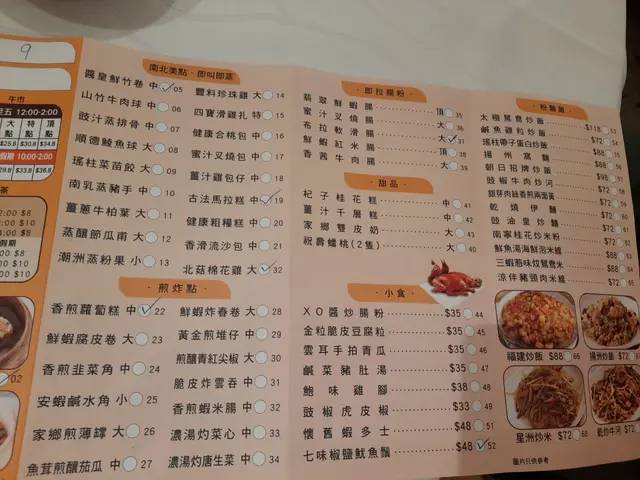 9
午市
五 12:00-2:00
大點 特點 頂點
$25.8 $30.8 $34.8
期 10:00-2:00
$29.8 $33.8 $36.8
茶
2:00 $8
0:00 $10
南北美點 · 即叫即蒸
醬皇鮮竹卷 中 05
山竹牛肉球 中 06
豉汁蒸排骨 中 07
順德鯪魚球 大 08
瑤柱菜苗餃 大 09
南乳蒸豬手 中 10
薑蔥牛柏葉 大 11
蒸釀節瓜甫 大 12
潮洲蒸粉果 小 13
豐料珍珠雞 大 14
四寶滑雞扎 特 15
健康合桃包 中 16
蜜汁叉燒包 中 17
薑汁雞包仔 中 18
古法馬拉糕 中 19
健康粗糧糕 中 20
香滑流沙包 中 21
北菇棉花雞 大 32
煎炸點
香煎蘿蔔糕 中 22
鮮蝦腐皮卷 大 23
香煎韭菜角 中 24
安蝦鹹水角 小 25
家鄉煎薄罉 大 26
魚茸煎釀茄瓜 中 27
鮮蝦炸春卷 大 28
黃金煎堆仔 中 29
煎釀青紅尖椒 大 30
脆皮炸雲吞 中 31
香煎蝦米腸 中 32
濃湯灼菜心 中 33
濃湯灼唐生菜 中 34
即拉腸粉
翡翠鮮蝦腸 頂 35
蜜汁叉燒腸 大 36
布拉軟滑腸 大 37
鮮蝦紅米腸 頂 38
香茜牛肉腸 大 39
甜品
杞子桂花糕 中 41
薑汁千層糕 中 42
家鄉雙皮奶 大 43
祝壽蟠桃(2隻) 大 40
小食
XO醬炒腸粉 $35 44
金粒脆皮豆腐粒 $35 45
雲耳手拍青瓜 $35 46
鹹菜豬肚湯 $35 47
鮑味雞腳 $38 48
豉椒虎皮椒 $33 49
懷舊蝦多士 $48 51
七味椒鹽魷魚鬚 $48 52
粉麵飯
太極鴛鴦炒飯 $118 53
鹹魚雞粒炒飯 $72 54
瑤柱帶子蛋白炒飯 $88 55
揚州窩麵
朝日招牌炒飯
豉椒牛肉炒河 $72
銀芽肉絲香煎兩面黃
乾燒伊麵
豉油皇炒麵
南寧桂花炒米粉
鮮魚湯海鮮泡米線 $88
三蝦胞味炆鴛鴦米
涼伴豬頸肉米線 $72 65
福建炒飯 $88 66
揚洲炒飯 $72
星洲炒米 $72 68
乾炒牛河 $72
圖片只供參考